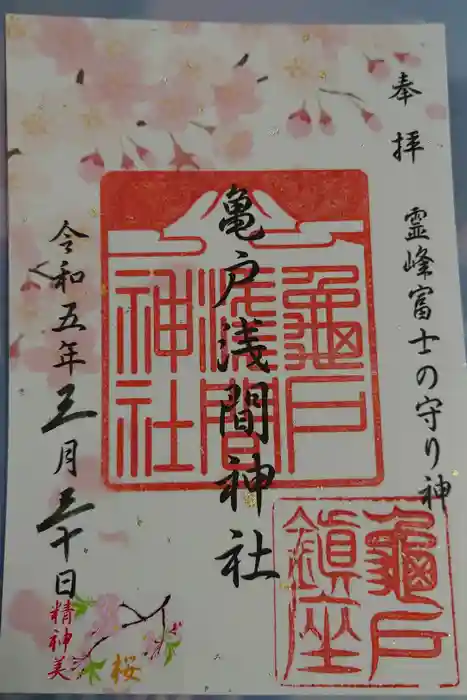 奉拝 霊峰富士の守り神
亀戸浅間神社
令和五年三月三十日
龜戸
浅間
神社
龜戸
鎮座
精神美
桜